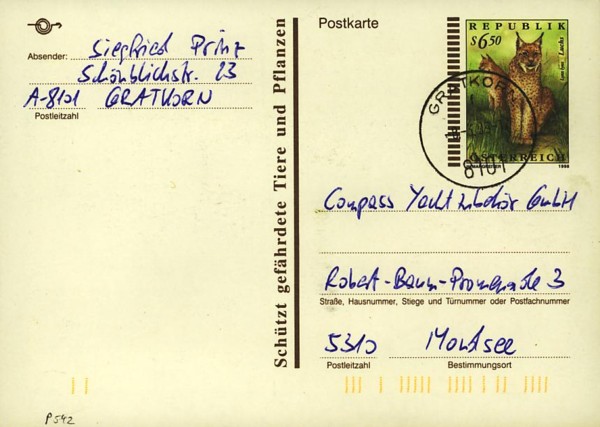 Absender: Siegfried Prinz
Schönblickstr. 23
A-8101 GRATKORN
Postleitzahl
Schützt gefährdete Tiere und Pflanzen
Postkarte
REPUBLIK
S 6,50
ÖSTERREICH
1996
GRATKORN
8101
Compass Yachtzubehör GmbH
Robert-Baum-Promenade 3
Straße, Hausnummer, Stiege und Türnummer oder Postfachnummer
5310 Mondsee
Postleitzahl Bestimmungsort
P 542